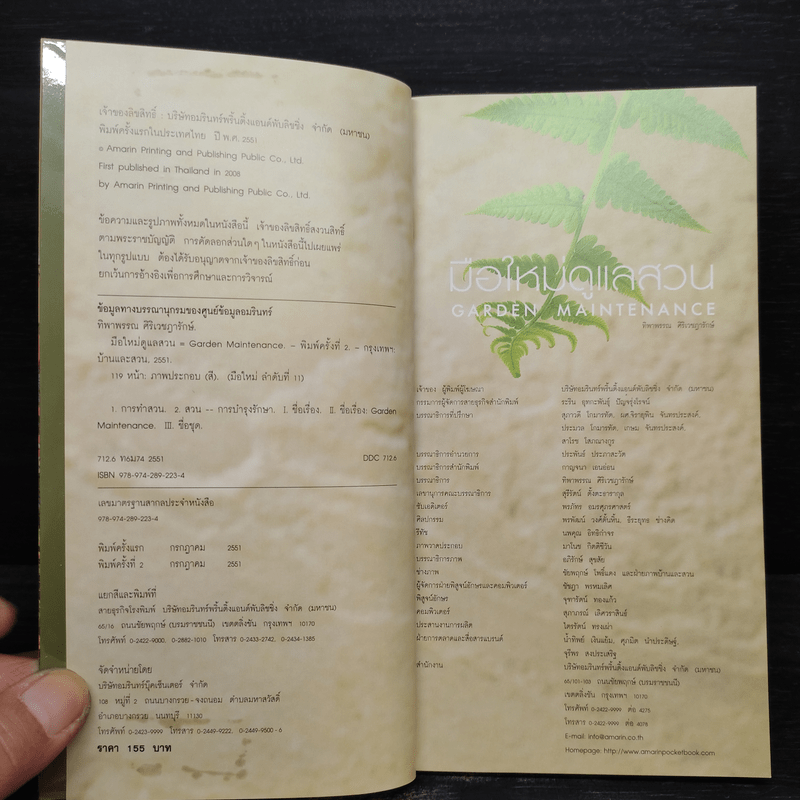 เจ้าของลิขสิทธิ์ : บริษัทอมรินทร์พริ้นติ้งแอนด์พับลิชชิ่ง จำกัด (มหาชน)
พิมพ์ครั้งแรกในประเทศไทย ปี พ.ศ. 2551
© Amarin Printing and Publishing Public Co., Ltd.
First published in Thailand in 2008
by Amarin Printing and Publishing Public Co., Ltd.
ข้อความและรูปภาพทั้งหมดในหนังสือนี้ เจ้าของลิขสิทธิ์สงวนสิทธิ์
ตามพระราชบัญญัติ การคัดลอกส่วนใดๆ ในหนังสือนี้ไปเผยแพร่
ในทุกรูปแบบ ต้องได้รับอนุญาตจากเจ้าของลิขสิทธิ์ก่อน
ยกเว้นการอ้างอิงเพื่อการศึกษาและการวิจารณ์
ข้อมูลทางบรรณานุกรมของศูนย์ข้อมูลอมรินทร์
ทิพาพรรณ ศิริเวชฎารักษ์.
มือใหม่ดูแลสวน = Garden Maintenance. – พิมพ์ครั้งที่ 2. – กรุงเทพฯ:
บ้านและสวน, 2551.
119 หน้า: ภาพประกอบ (สี). (มือใหม่ ลำดับที่ 11)
1. การทำสวน. 2. สวน -- การบำรุงรักษา. I. ชื่อเรื่อง. II. ชื่อเรื่อง: Garden
Maintenance. III. ชื่อชุด.
712.6 ท6ม74 2551 DDC 712.6
ISBN 978-974-289-223-4
เลขมาตรฐานสากลประจำหนังสือ
978-974-289-223-4
พิมพ์ครั้งแรก กรกฎาคม 2551
พิมพ์ครั้งที่ 2 กรกฎาคม 2551
แยกสีและพิมพ์ที่
สายธุรกิจโรงพิมพ์ บริษัทอมรินทร์พริ้นติ้งแอนด์พับลิชชิ่ง จำกัด (มหาชน)
65/16 ถนนชัยพฤกษ์ (บรมราชชนนี) เขตตลิ่งชัน กรุงเทพฯ 10170
โทรศัพท์ 0-2422-9000, 0-2882-1010 โทรสาร 0-2433-2742, 0-2434-1385
จัดจำหน่ายโดย
บริษัทอมรินทร์บุ๊คเซ็นเตอร์ จำกัด
108 หมู่ที่ 2 ถนนบางกรวย-จงถนอม ตำบลมหาสวัสดิ์
อำเภอบางกรวย นนทบุรี 11130
โทรศัพท์ 0-2423-9999 โทรสาร 0-2449-9222, 0-2449-9500-6
ราคา 155 บาท
มือใหม่ดูแลสวน
GARDEN MAINTENANCE
ทิพาพรรณ ศิริเวชฎารักษ์
เจ้าของ ผู้พิมพ์ผู้โฆษณา บริษัทอมรินทร์พริ้นติ้งแอนด์พับลิชชิ่ง จำกัด (มหาชน)
กรรมการผู้จัดการสายธุรกิจสำนักพิมพ์ ระริน อุทกะพันธุ์ ปัญจรุ่งโรจน์
บรรณาธิการที่ปรึกษา สุภาวดี โกมารทัต, จันทรประสงค์,
ประมวล โกมารทัต, เกษม จันทรประสงค์,
สาโรช โสภณางกูร
บรรณาธิการอำนวยการ ประพันธ์ ประภาสะวัต
บรรณาธิการสำนักพิมพ์ กาญจนา เอนอ่อน
บรรณาธิการ ทิพาพรรณ ศิริเวชฎารักษ์
เลขานุการคณะบรรณาธิการ สุริรัตน์ ตั้งตะธารากุล
ซับเอดิเตอร์ พรภัทร อมรศุภรศาสตร์
ศิลปกรรม พรพัฒน์ วงศ์ตั้นหิ้น, ธีระยุทธ ช่างคิด
รีทัช นพคุณ อิทธิกำจร
ภาพวาดประกอบ มาโนช กิตติชีวัน
บรรณาธิการภาพ อภิรักษ์ สุขสัย
ช่างภาพ ชัยพฤกษ์ โพธิ์แดง และฝ่ายภาพบ้านและสวน
ผู้จัดการฝ่ายพิสูจน์อักษรและคอมพิวเตอร์ ชัชฎา พรหมเลิศ
พิสูจน์อักษร จุฑารัตน์ ทองแก้ว
คอมพิวเตอร์ สุภาภรณ์ เลิศวราสินธ์
ประสานงานการผลิต ไตรรัตน์ ทรงเผ่า
ฝ่ายการตลาดและสื่อสารแบรนด์ น้ำทิพย์ เงินแย้ม, ศุภมิต นำประดิษฐ์,
จุรีพร ลงประเสริฐ
สำนักงาน บริษัทอมรินทร์พริ้นติ้งแอนด์พับลิชชิ่ง จำกัด (มหาชน)
65/101-103 ถนนชัยพฤกษ์ (บรมราชชนนี)
เขตตลิ่งชัน กรุงเทพฯ 10170
โทรศัพท์ 0-2422-9999 ต่อ 4275
โทรสาร 0-2422-9999 ต่อ 4275
E-mail: info@amarin.co.th
Homepage: http://www.amarinpocketbook.com